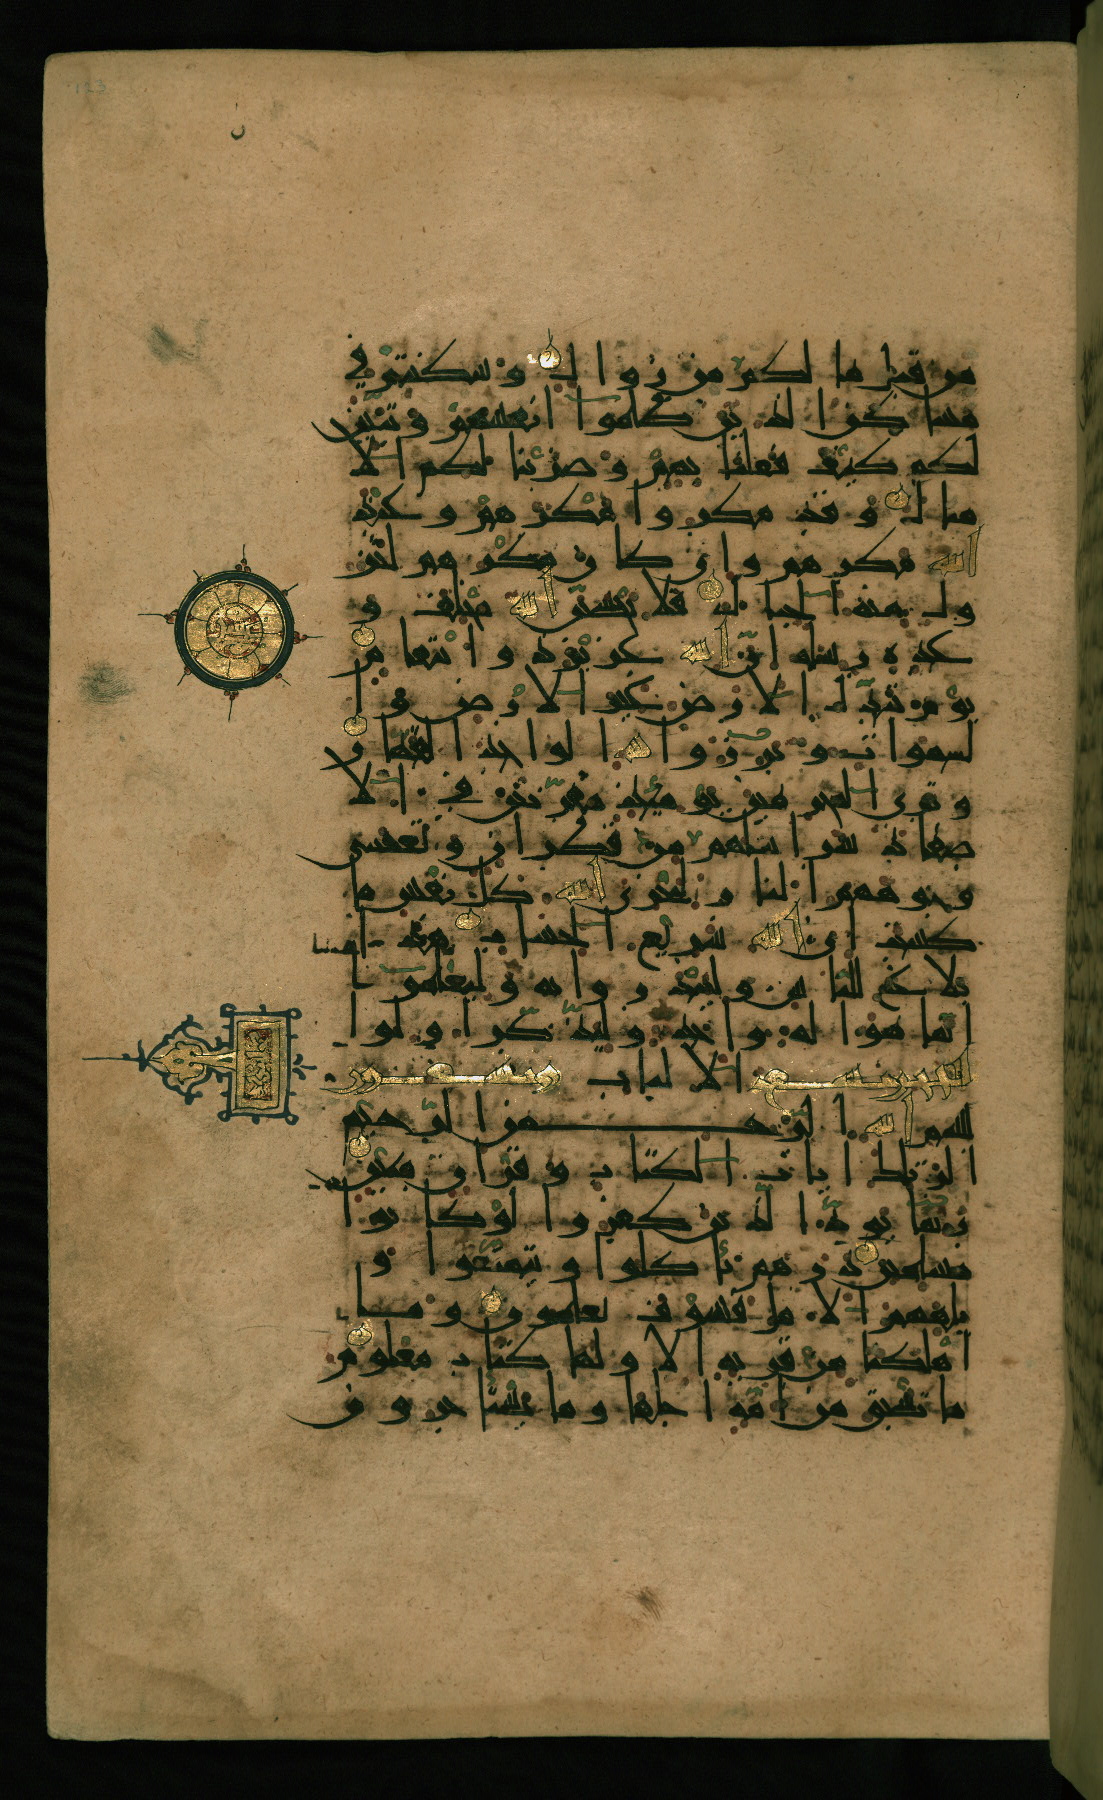 123
من قبل ما لكم من زوال وسكنتم في
مساكن الذين ظلموا انفسهم وتبين
لكم كيف فعلنا بهم وضربنا لكم الا
مثال وقد مكروا مكرهم وعند
الله مكرهم وان كان مكرهم لتز
ول منه الجبال فلا تحسبن الله مخلف و
عده رسله ان الله عزيز ذو انتقام
يوم تبدل الارض غير الارض وا
لسموات وبرزوا لله الواحد القهار
وترى المجرمين يومئذ مقرنين في الا
صفاد سرابيلهم من قطران وتغشى
وجوههم النار ليجزي الله كل نفس ما
كسبت ان الله سريع الحساب هذا
بلاغ للناس ولينذروا به وليعلموا
انما هو اله واحد وليذكر اولوا
الالباب
بسم الله الرحمن الرحيم
الر تلك ايات الكتاب وقران مبين
ربما يود الذين كفروا لو كانوا
مسلمين ذرهم ياكلوا ويتمتعوا و
يلههم الامل فسوف يعلمون وما
اهلكنا من قرية الا ولها كتاب معلوم
ما تسبق من امة اجلها وما يستاخرون